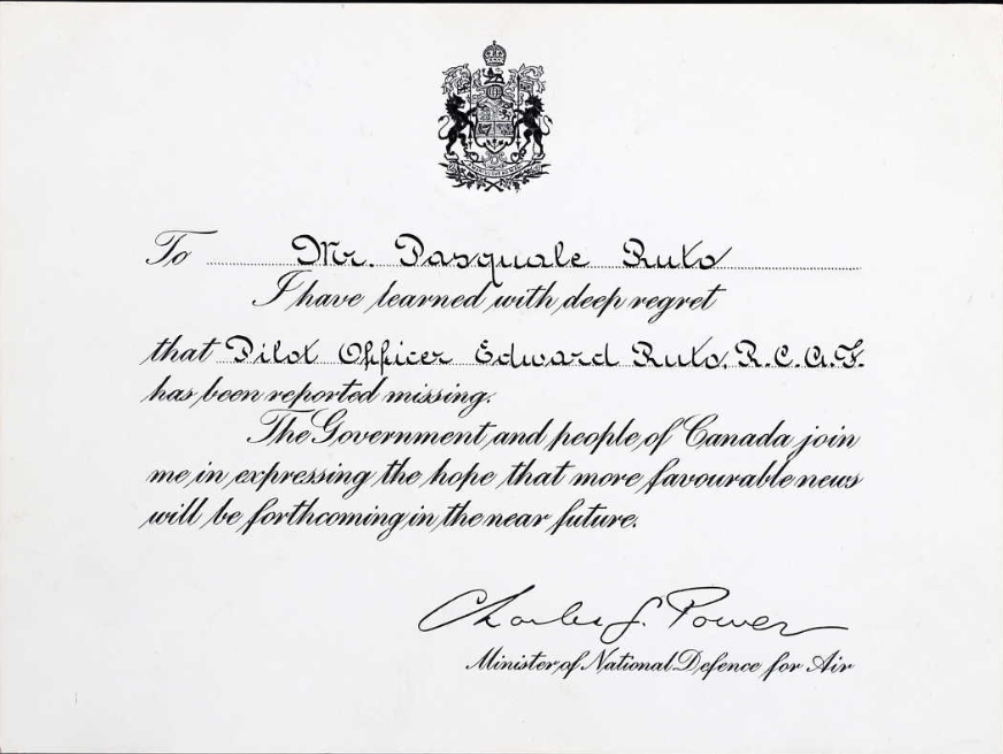 To Mr. Pasquale Ruto
I have learned with deep regret
that Pilot Officer Edward Ruto, R.C.A.F.
has been reported missing.
The Government and people of Canada join
me in expressing the hope that more favourable news
will be forthcoming in the near future.
Charles G. Power
Minister of National Defence for Air